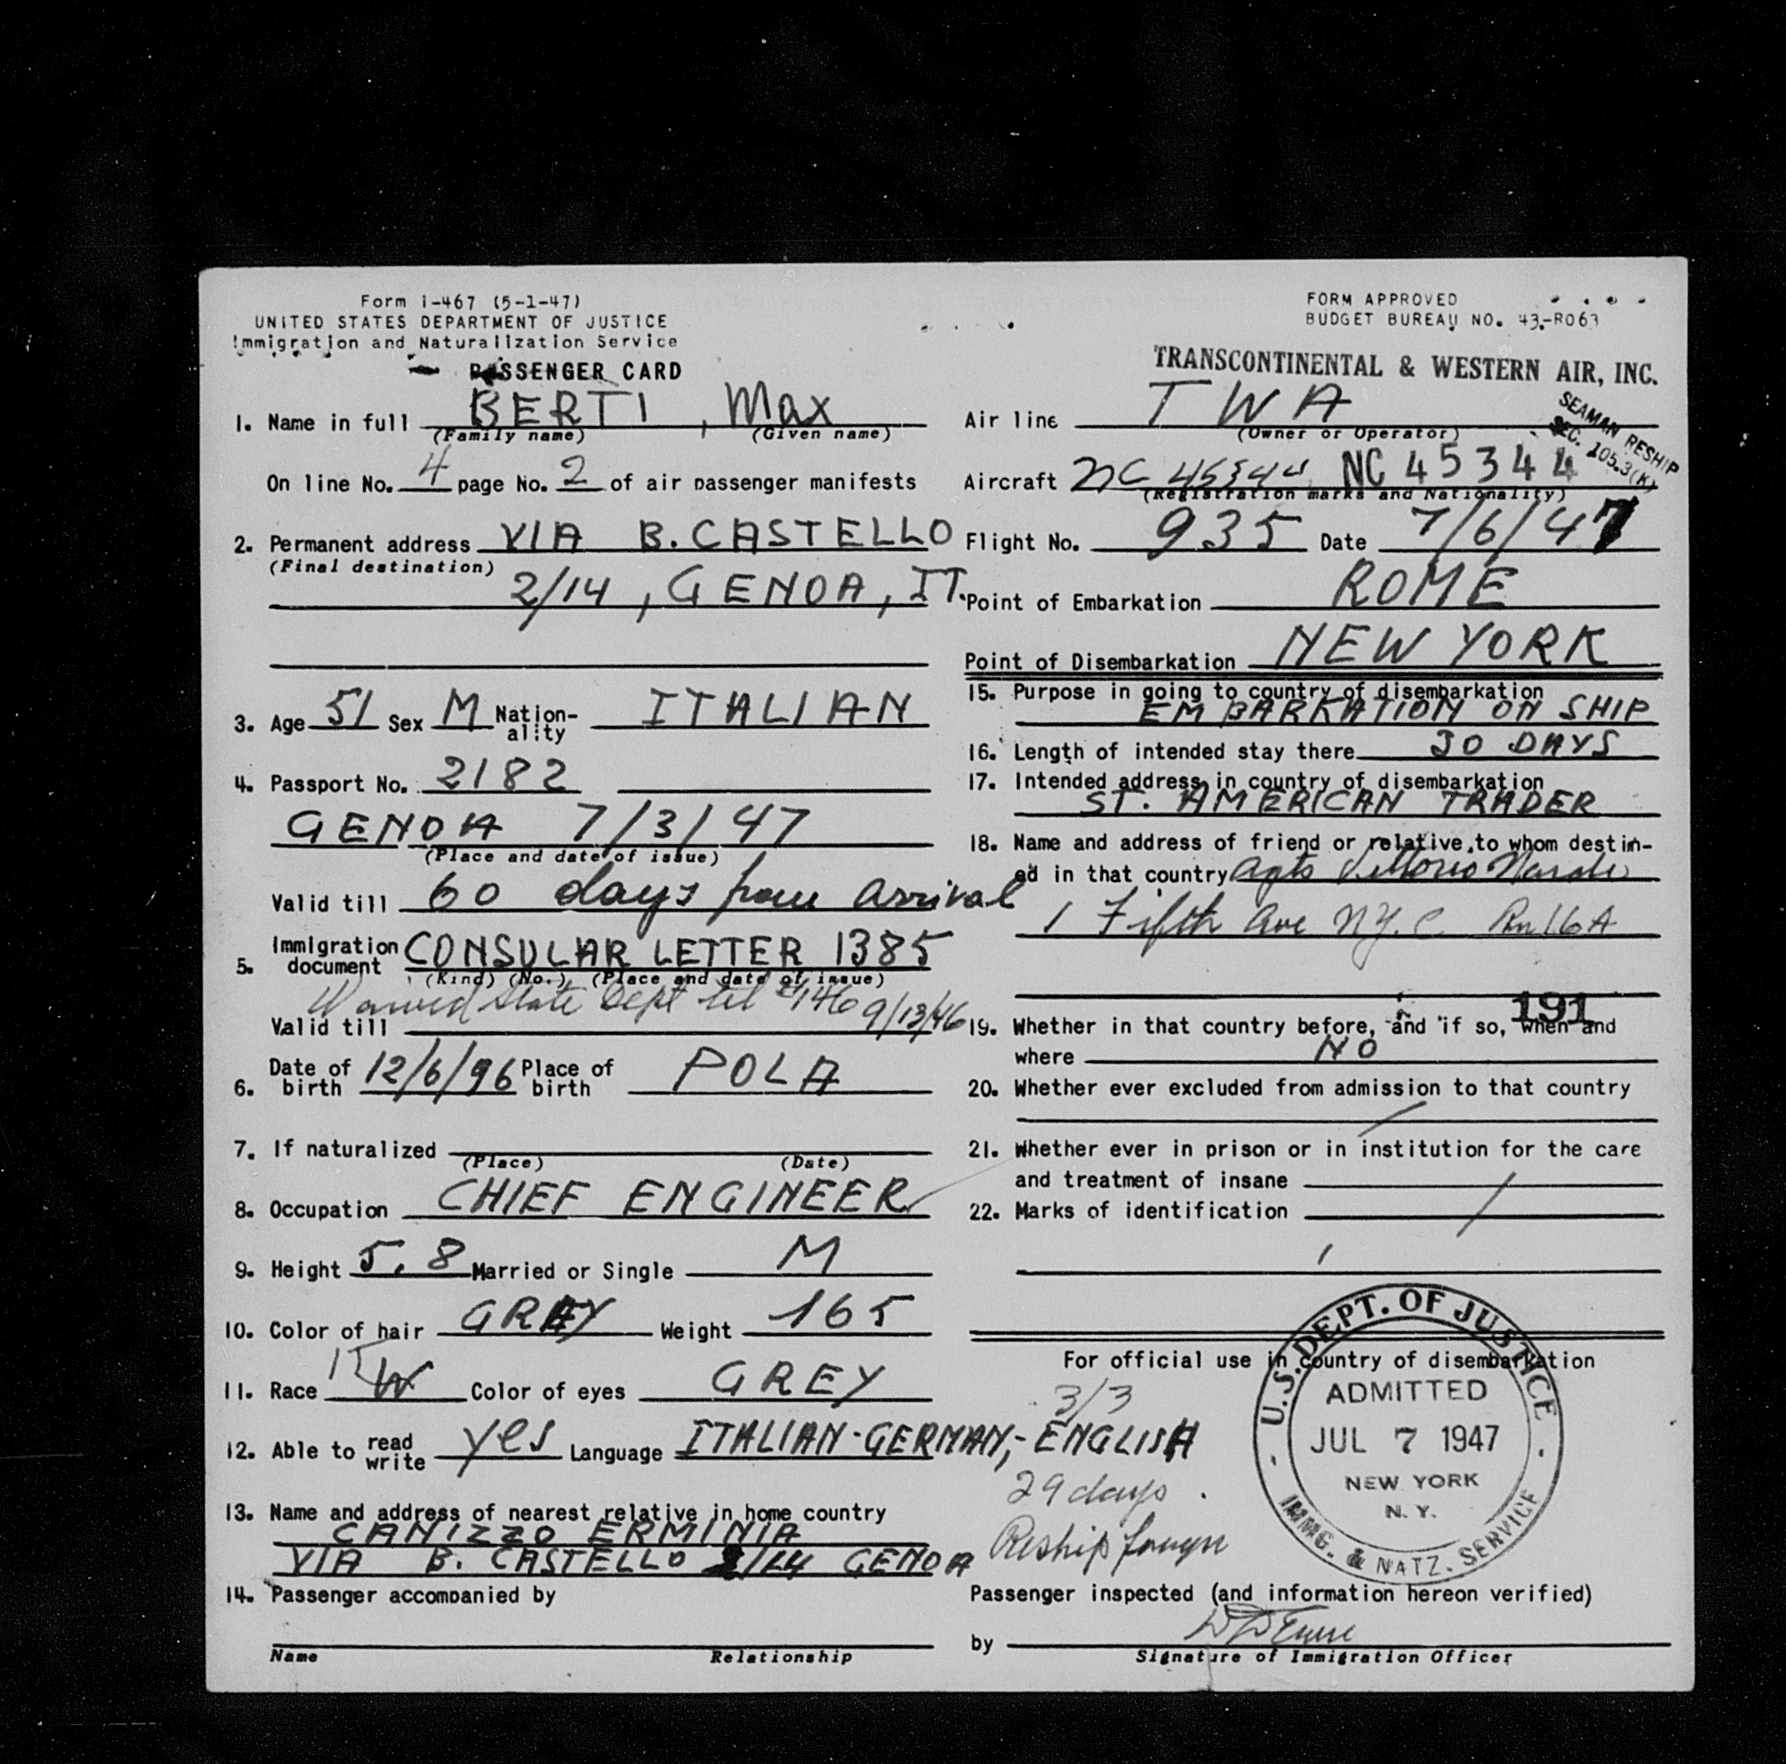 Form I-467 (5-1-47)
UNITED STATES DEPARTMENT OF JUSTICE
Immigration and Naturalization Service
PASSENGER CARD
1. Name in full BERTI, Max
(Family name) (Given name)
On line No. 4 page No. 2 of air passenger manifests
2. Permanent address VIA B. CASTELLO
(Final destination)
2/14, GENOA, IT.
3. Age 51 Sex M Nation-ality ITALIAN
4. Passport No. 2182
GENOA 7/3/47
(Place and date of issue)
Valid till 60 days from arrival
5. Immigration document CONSULAR LETTER 1385
(Kind) (No.) (Place and date of issue)
Waived State Dept tel 9/13/46
Valid till
6. Date of birth 12/6/96 Place of birth POLA
7. If naturalized
(Place) (Date)
8. Occupation CHIEF ENGINEER
9. Height 5.8 Married or Single M
10. Color of hair GREY Weight 165
11. Race W Color of eyes GREY
12. Able to read write yes Language ITALIAN-GERMAN,-ENGLISH
13. Name and address of nearest relative in home country
CANIZZO ERMINIA
VIA B. CASTELLO 2/14 GENOA
14. Passenger accompanied by
Name Relationship
FORM APPROVED
BUDGET BUREAU NO. 43-R063
TRANSCONTINENTAL & WESTERN AIR, INC.
Air line TWA
(Owner or Operator)
SEAMAN RESHIP
SEC. 105.3(K)
Aircraft NC 45344 NC 45344
(Registration marks and Nationality)
Flight No. 935 Date 7/6/47
Point of Embarkation ROME
Point of Disembarkation NEW YORK
15. Purpose in going to country of disembarkation
EMBARKATION ON SHIP
16. Length of intended stay there 30 DAYS
17. Intended address in country of disembarkation
ST. AMERICAN TRADER
18. Name and address of friend or relative to whom destin-
ed in that country agts Vittorio
1 Fifth Ave N.Y.C. Rm 16A
191
19. Whether in that country before, and if so, when and
where NO
20. Whether ever excluded from admission to that country
21. Whether ever in prison or in institution for the care
and treatment of insane
22. Marks of identification
For official use in country of disembarkation
3/3
29 days.
Reship
U.S. DEPT. OF JUSTICE
ADMITTED
JUL 7 1947
NEW YORK
N. Y.
IMMG. & NATZ. SERVICE
Passenger inspected (and information hereon verified)
by
Signature of Immigration Officer